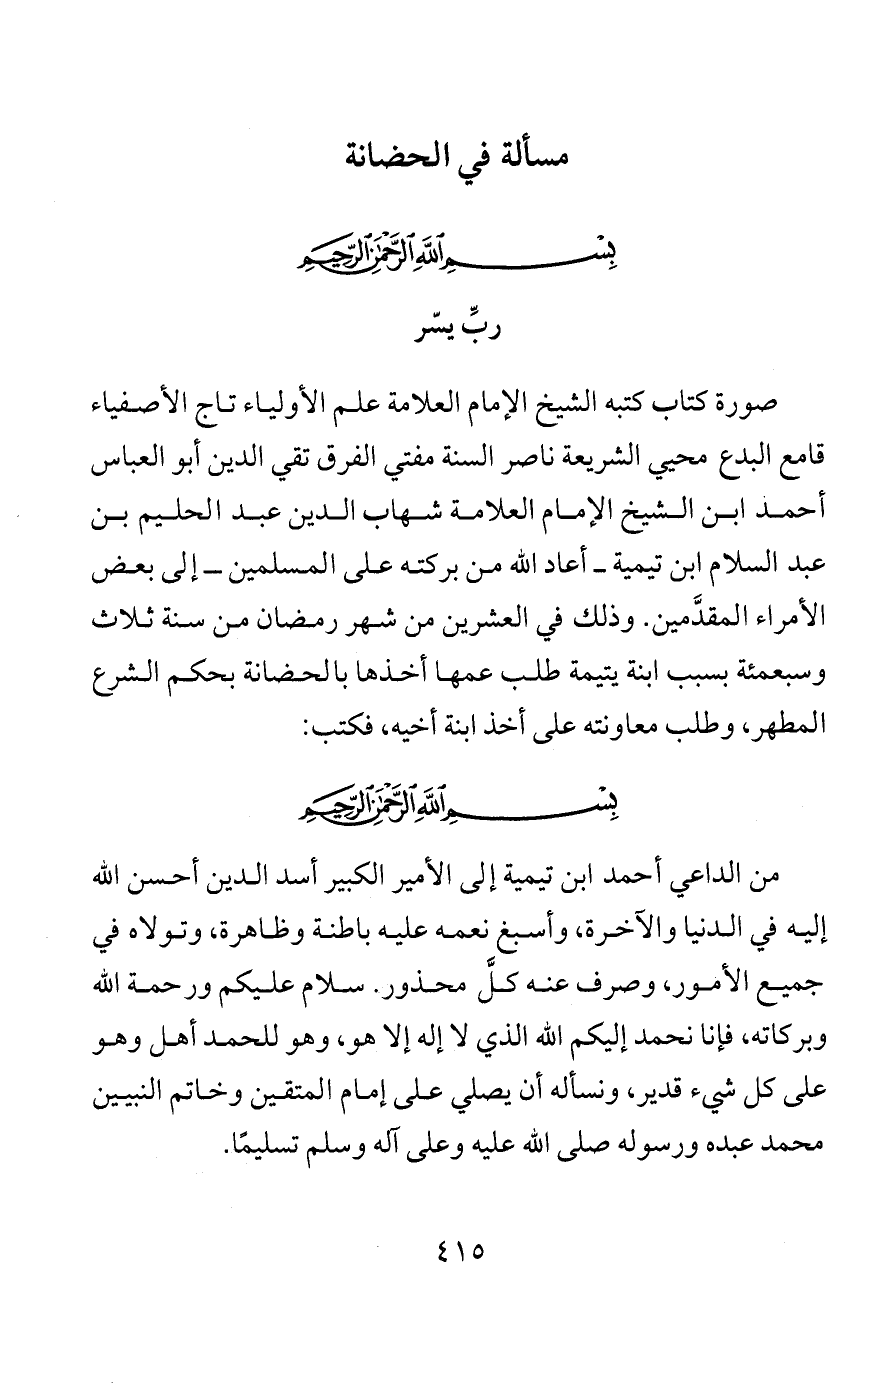 مسألة في الحضانة
بِسْمِ اللَّهِ الرَّحْمَٰنِ الرَّحِيمِ
ربِّ يسّر
صورة كتاب كتبه الشيخ الإمام العلامة علم الأولياء تاج الأصفياء
قامع البدع محيي الشريعة ناصر السنة مفتي الفرق تقي الدين أبو العباس
أحمد ابن الشيخ الإمام العلامة شهاب الدين عبد الحليم بن
عبد السلام ابن تيمية - أعاد الله من بركته على المسلمين - إلى بعض
الأمراء المقدَّمين. وذلك في العشرين من شهر رمضان من سنة ثلاث
وسبعمئة بسبب ابنة يتيمة طلب عمها أخذها بالحضانة بحكم الشرع
المطهر، وطلب معاونته على أخذ ابنة أخيه، فكتب:
بِسْمِ اللَّهِ الرَّحْمَٰنِ الرَّحِيمِ
من الداعي أحمد ابن تيمية إلى الأمير الكبير أسد الدين أحسن الله
إليه في الدنيا والآخرة، وأسبغ نعمه عليه باطنة وظاهرة، وتولاه في
جميع الأمور، وصرف عنه كلَّ محذور. سلام عليكم ورحمة الله
وبركاته، فإنا نحمد إليكم الله الذي لا إله إلا هو، وهو للحمد أهل وهو
على كل شيء قدير، ونسأله أن يصلي على إمام المتقين وخاتم النبيين
محمد عبده ورسوله صلى الله عليه وعلى آله وسلم تسليمًا.
٤١٥